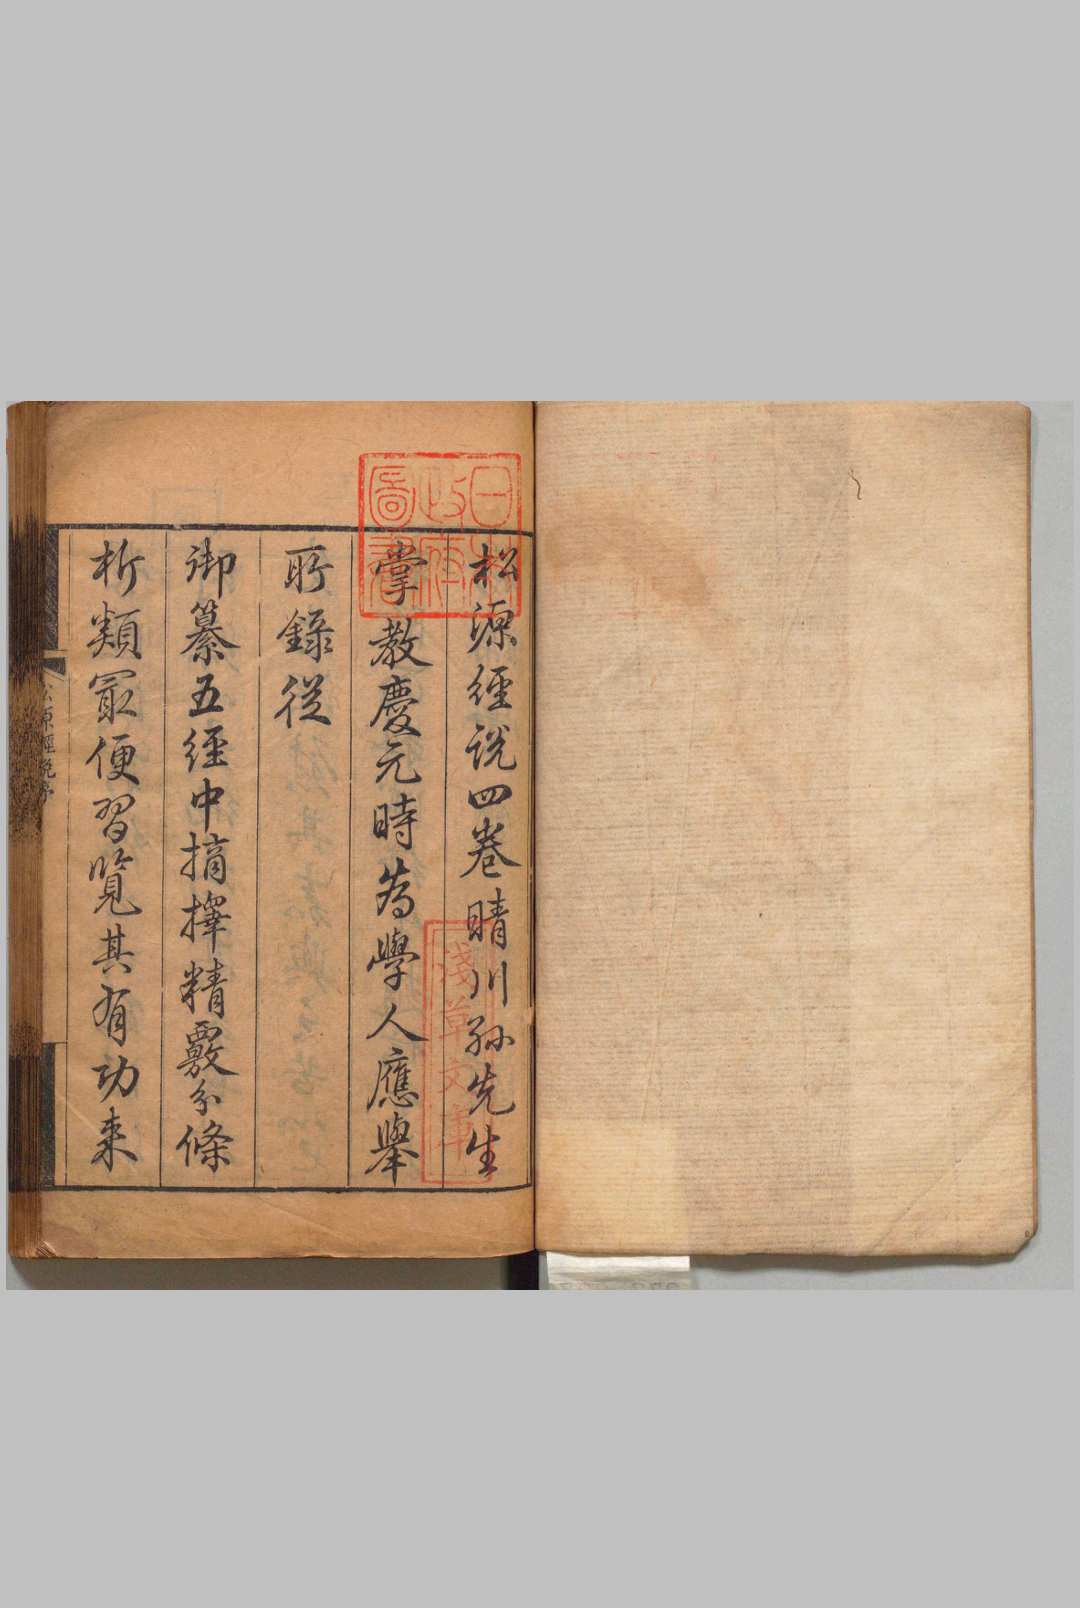 松源經說四卷晴川孫先生
掌教慶元時爲學人應舉
所錄從
御纂五經中摘擇精覈分條
析類寂便習覽其有功來
松源經說序
日本政府圖書
淺草文庫